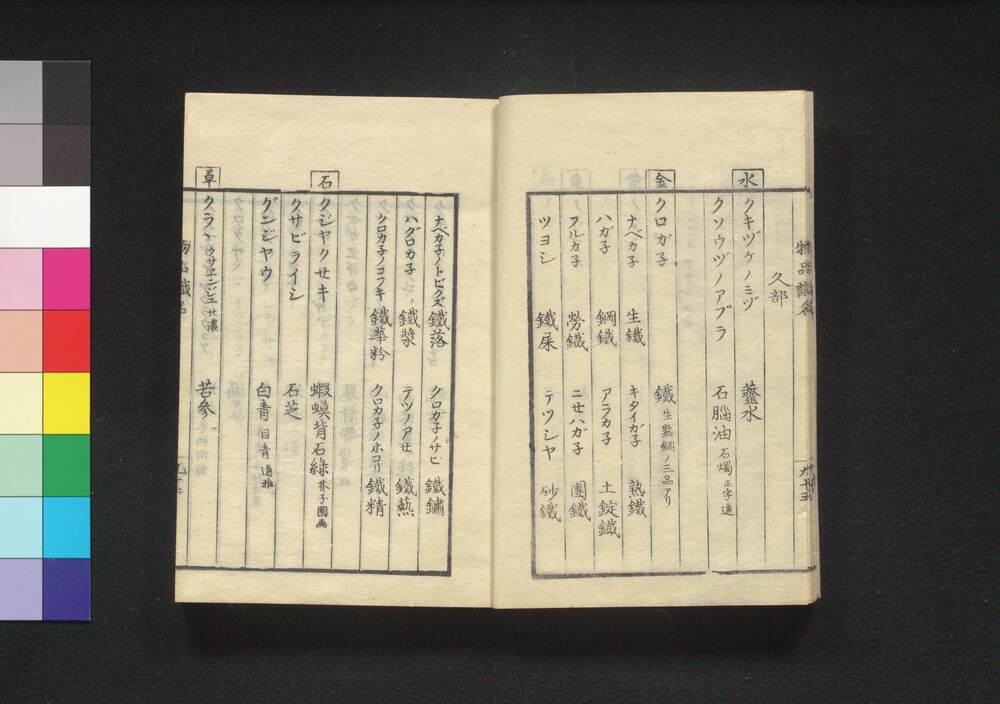 物品識名
久部
水
クキヅケノミヅ 虀水
クソウヅノアブラ 石腦油 石燭 正字通
金
クロガ子 鐵 生熟鋼ノ三品アリ
ナベカ子 生鐵 キタイガ子 熟鐵
ハガ子 鋼鐵 アラカ子 土錠鐵
フルカ子 勞鐵 ニセハガ子 團鐵
ツヨシ 鐵屎 テツシヤ 砂鐵
ナベカ子ノトビクズ 鐵落 クロガ子ノサビ 鐵鏽
ハグロカ子 鐵漿 テツノアセ 鐵爇
クロカ子ノコフキ 鐵華粉 クロカ子ノホコリ 鐵精
石
クジヤクサキ 蝦蟆背石綠 芥子園画
クサビライシ 石芝
グンジヤウ 白青 目青 通雅
草
クララ 北濃 苦參